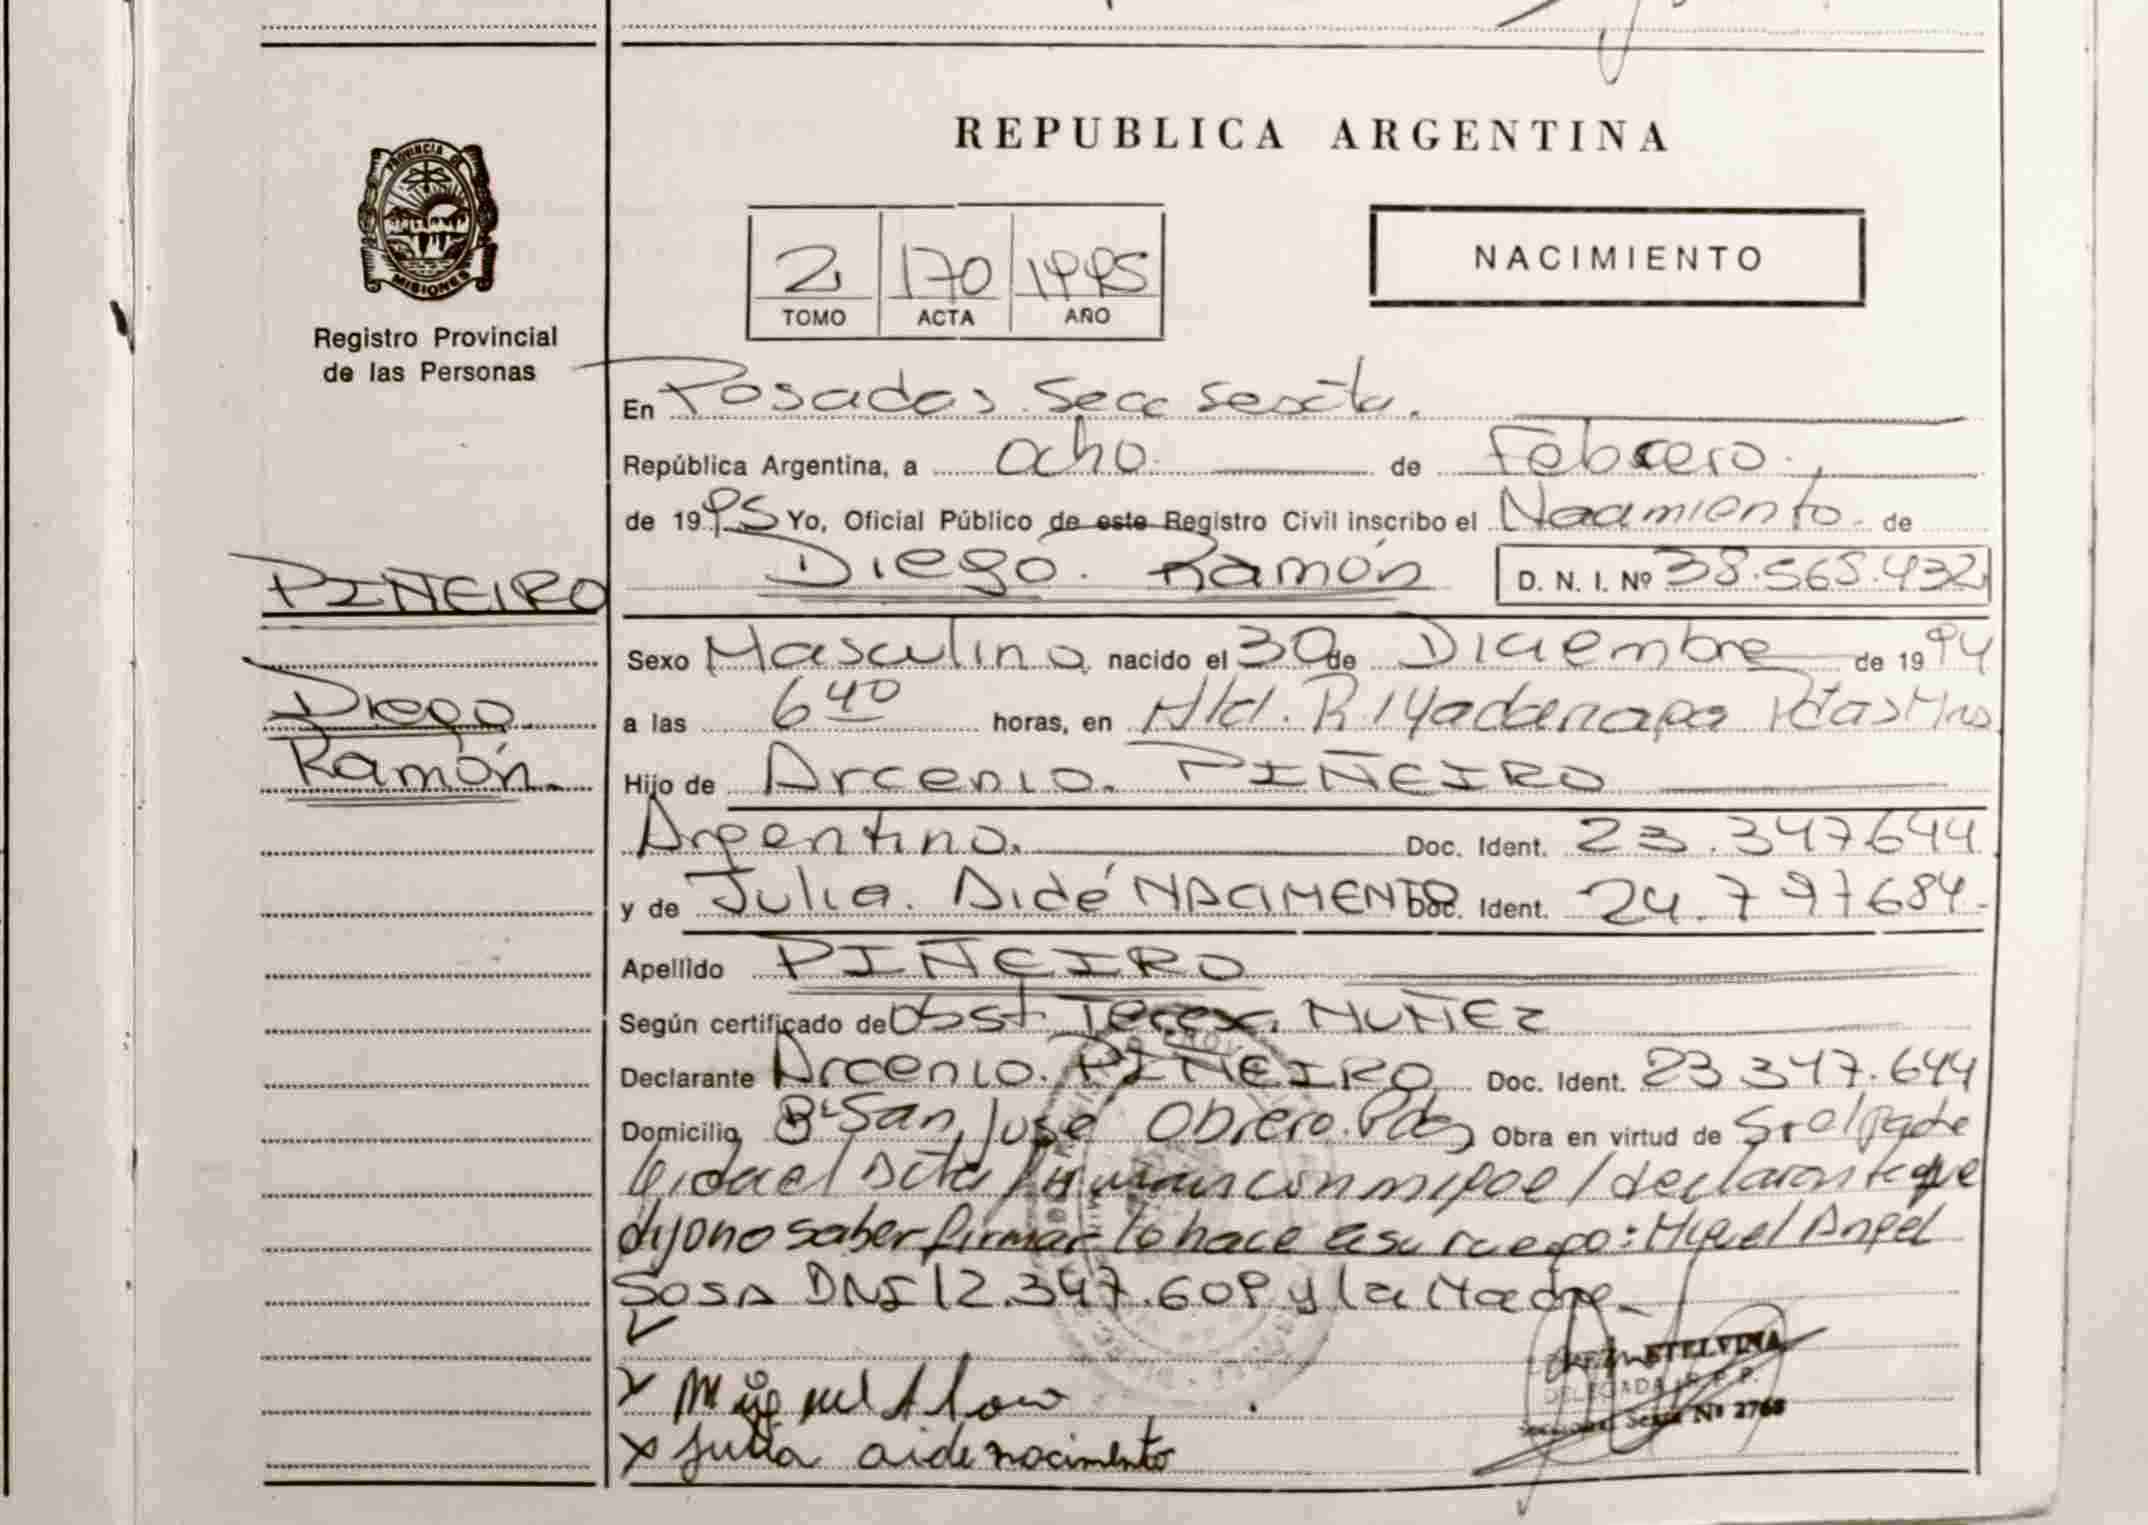 REPUBLICA ARGENTINA
PROVINCIA DE
MISIONES
Registro Provincial
de las Personas
2 170 1995
TOMO ACTA AÑO
NACIMIENTO
En Posadas. Secc sexta.
República Argentina, a ocho de Febrero.
de 1995 Yo, Oficial Público de este Registro Civil inscribo el Nacimiento de
PIÑEIRO
Diego Ramón
Diego. Ramón D. N. I. Nº 38.568.432
Sexo Masculino nacido el 30 de Diciembre de 1994
a las 6 40 horas, en Htal. R. Madariaga Pdas Mnes
Hijo de Arcenio. PIÑEIRO
Argentino. Doc. Ident. 23.347644
y de Julia. Aidé NACIMENTO Doc. Ident. 24.797684.
Apellido PIÑEIRO
Según certificado de Obst. NUÑEZ
Declarante Arcenio. PIÑEIRO Doc. Ident. 23 347.644
Domicilio Bº San José Obrero. Pdas Obra en virtud de Ser el padre
Leida el Acta firman conmigo el declarante que
dijo no saber firmar lo hace a su ruego: Miguel Angel
SOSA DNI 12.347.609 y la Madre
x Miguel A
x Julia aide nacimento
ETELVINA
DELEGADA R. P. P.
Seccional Sexta Nº 2768